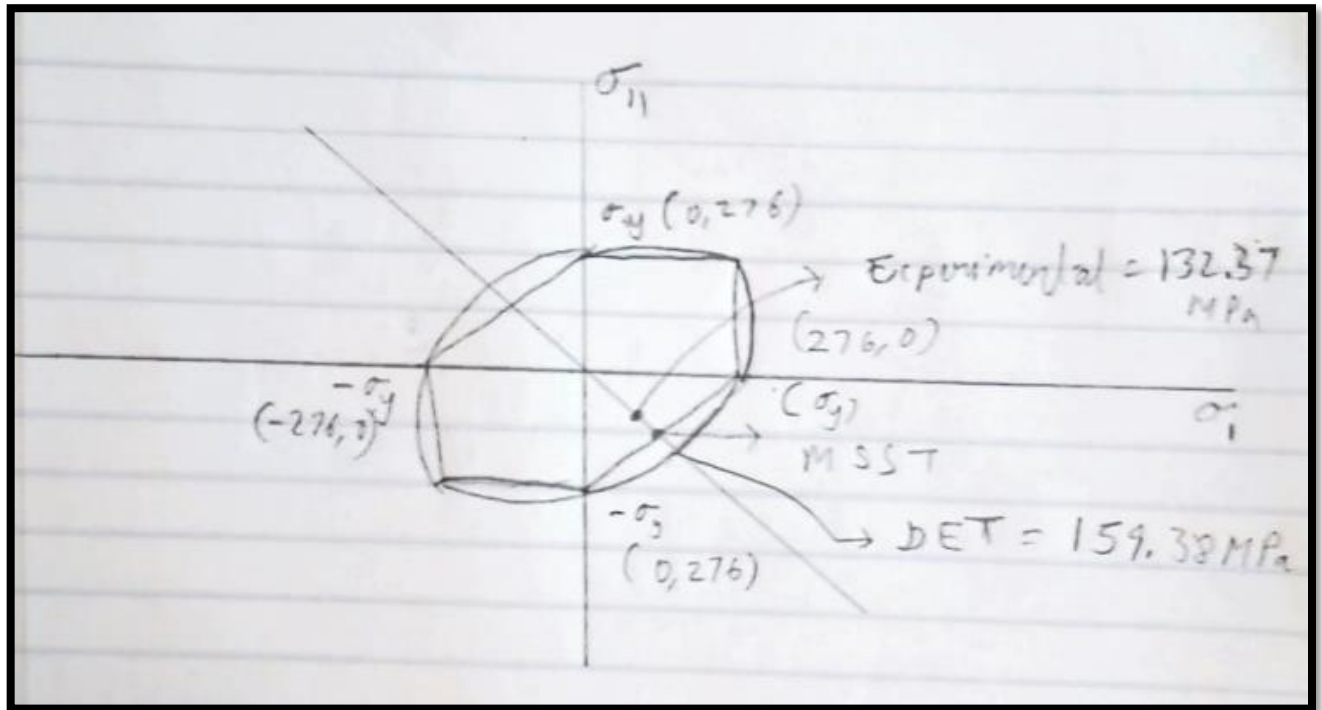 σ₁₁
σy (0,276)
Experimental = 132.37
MPa
(276,0)
-σy
(-276,0)
(σy)
σ₁
MSST
-σy
(0,276)
DET = 159.38MPa